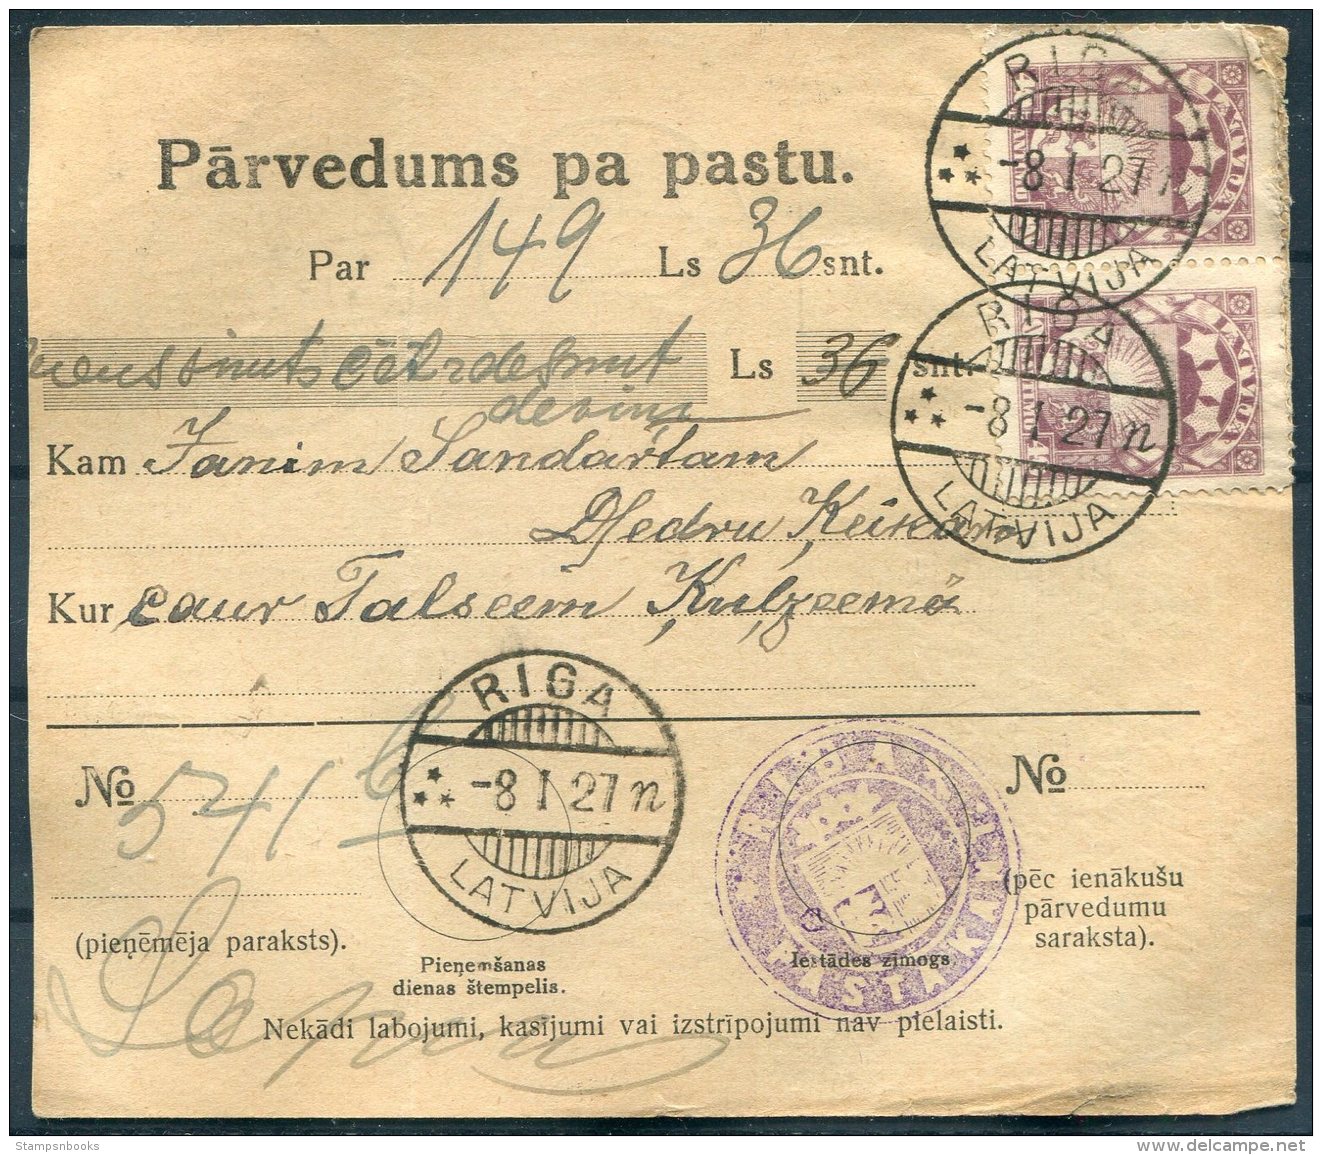 Pārvedums pa pastu.
Par 149 Ls 36 snt.
viens simts četrdesmit Ls 36 snt.
deviņi
Kam Janim Sandaršam
Kur caur Talseem Kurzeemā
RIGA
-8 I 27 n
LATVIJA
RIGA
-8 I 27 n
LATVIJA
LATVIJA
LATVIJA
RIGA
-8 I 27 n
LATVIJA
No 541 b
No
(pieņēmēja paraksts).
Pieņemšanas
dienas štempelis.
Iestādes zimogs.
(pēc ienākušu
pārvedumu
saraksta).
Nekādi labojumi, kasījumi vai izstrīpojumi nav pielaisti.
Stampsnbooks
www.delcampe.net